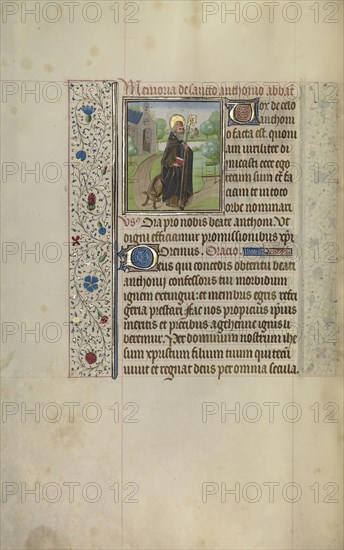 Memoria de sancto anthonio abbate
Vox de celo
anthoni
o facta est quoni
am viriliter di
micasti ecce ego
tecum sum et fa
ciam te in toto
orbe nominari
Vs Ora pro nobis beate anthoni Vt
digni efficiamur promissionibus xpi
Oremus. Oracio
Deus qui concedis obtentu beati
anthonij confessoris tui morbidum
ignem extingui et membris egris refri
geria prestari fac nos propicius ipius
meritis et precibus a gehenne ignis li
beremur. Per dominum nostrum ihe
sum xpristum filium tuum qui tecum
viuit et regnat deus per omnia secula.
PHOTO 12 PHOTO 12 PHOTO 12